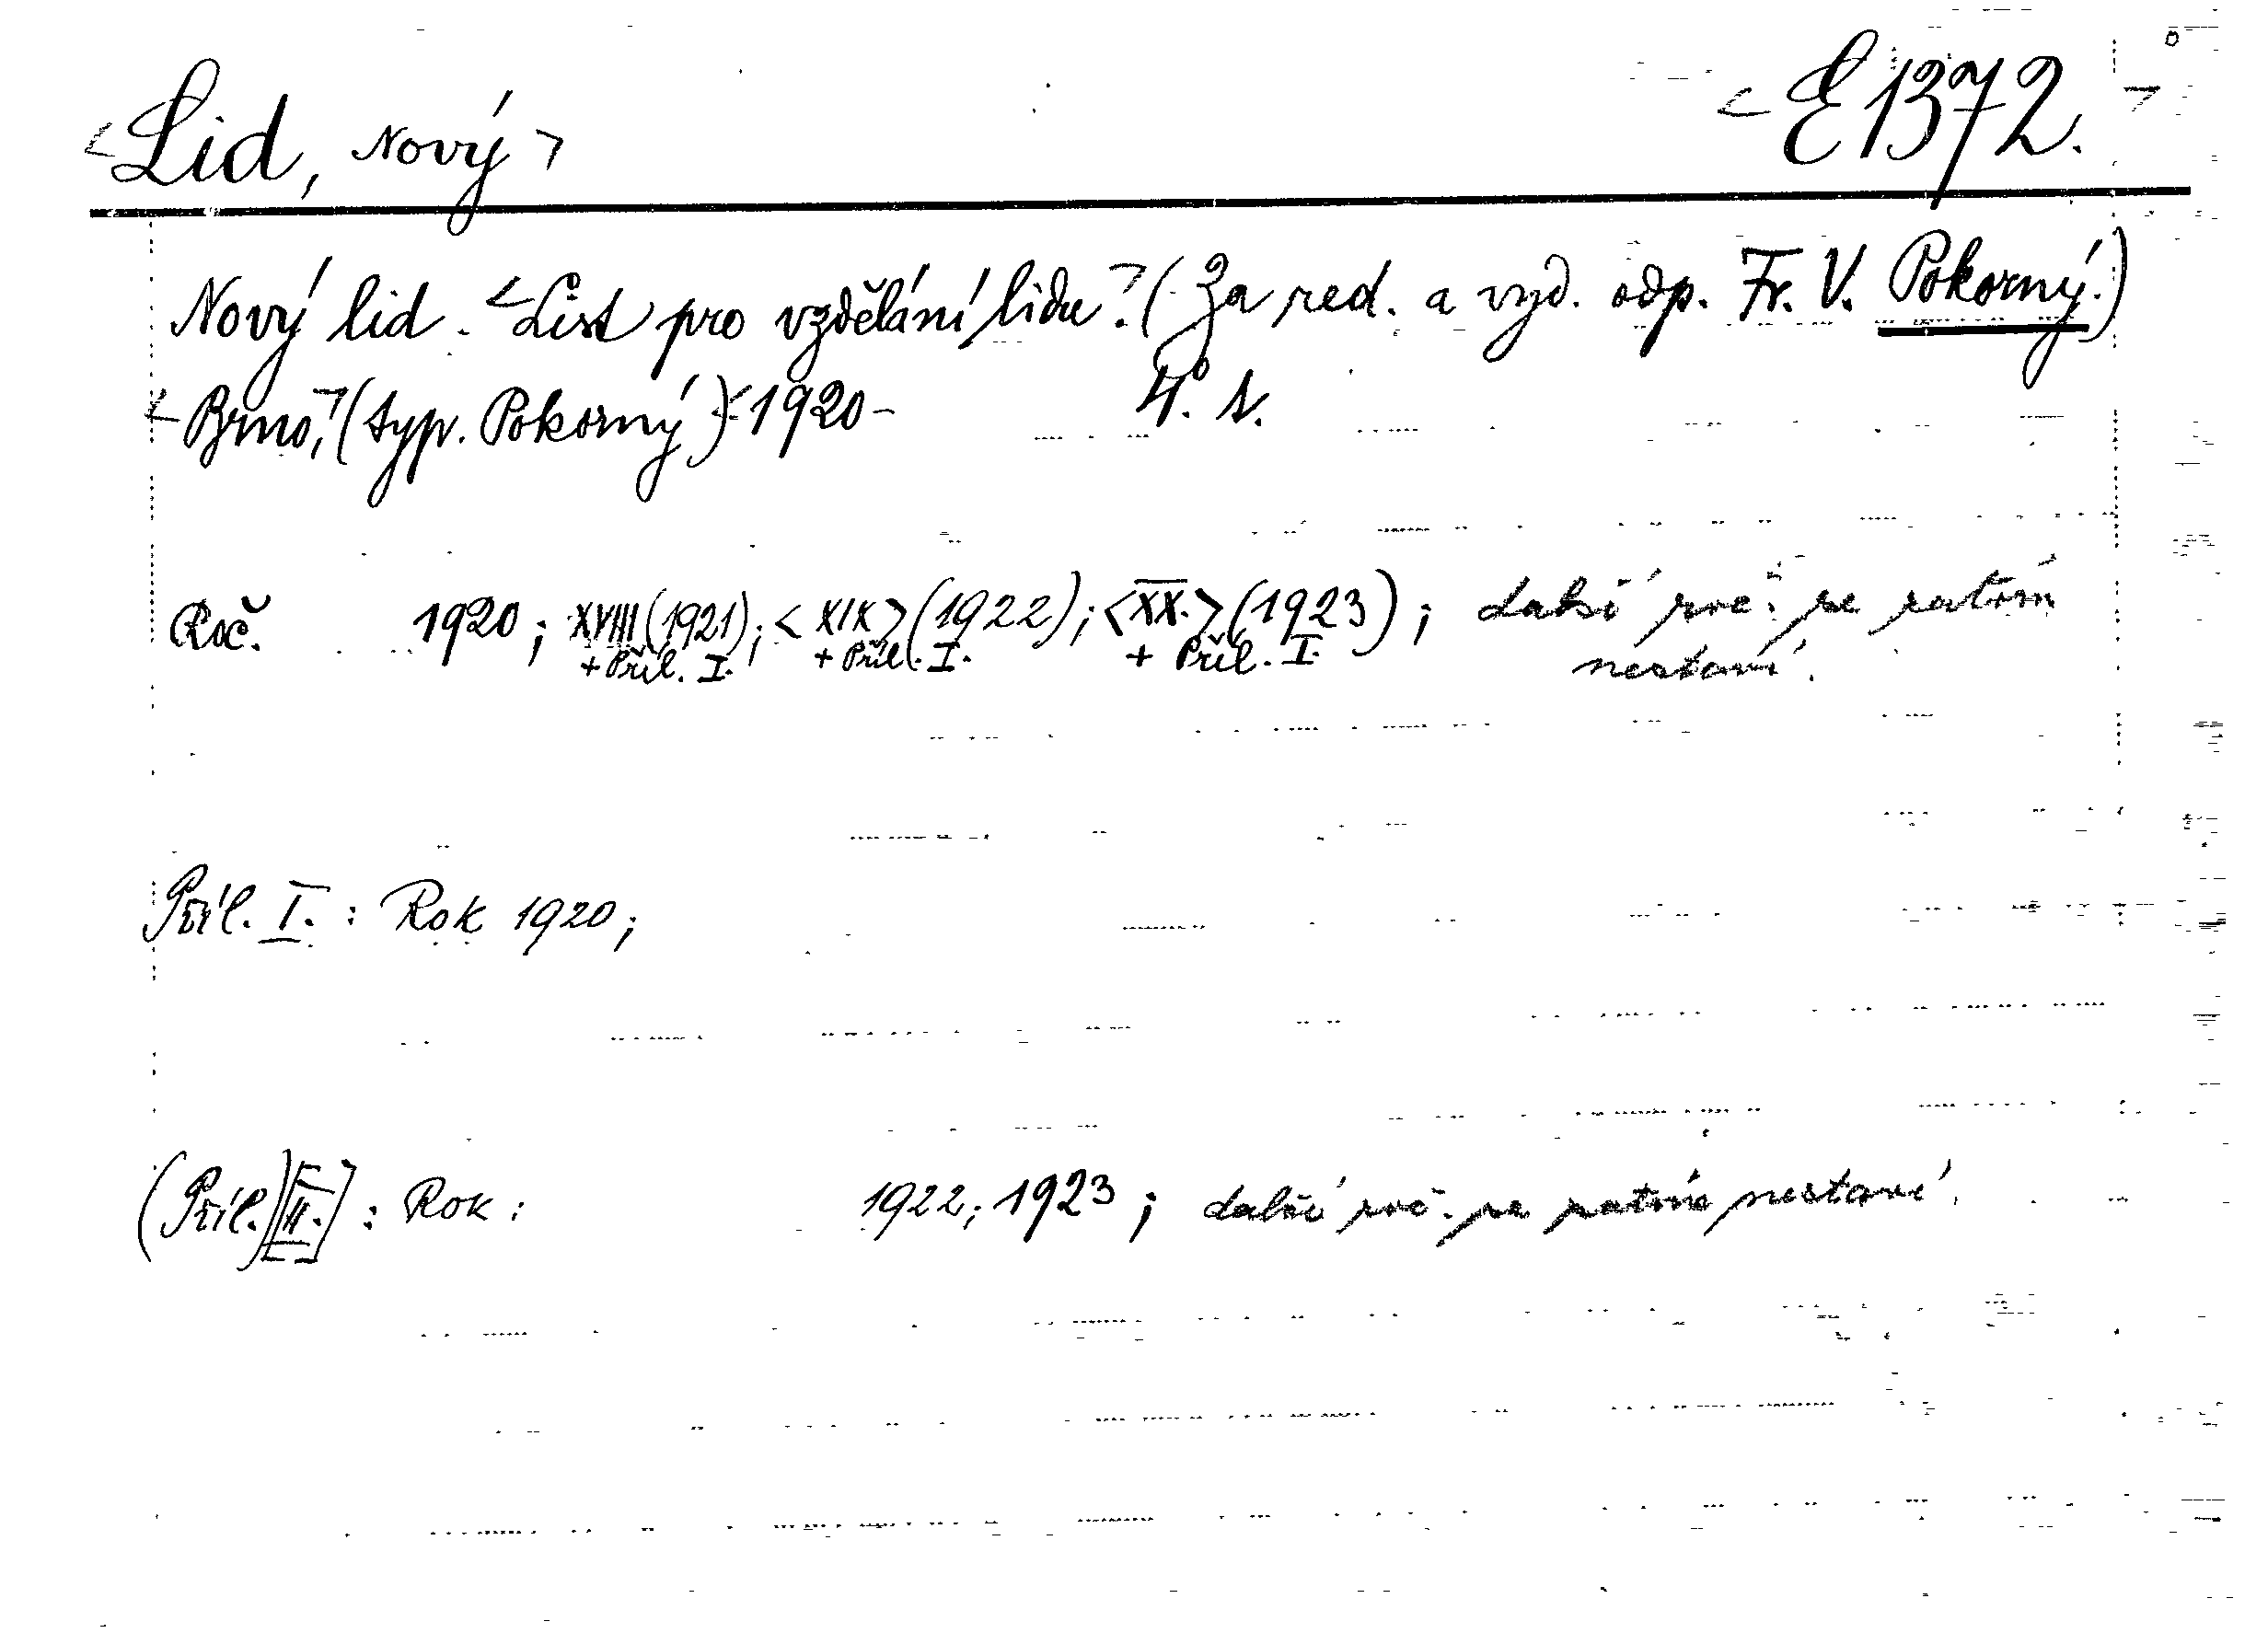 <Lid, Nový>
<E 1372.>
Nový lid. <List pro vzdělání lidu>. (Za red. a vyd. odp. Fr. V. Pokorný.)
<Brno,> (typ. Pokorný) <1920- 4°. s.
Roč. 1920; XVIII (1921); <XIX> (1922); <XX.> (1923); další roč. se zatím
+ Příl. I. + Příl. I. + Příl. I. nestaví.
Příl. I. : Rok 1920;
(Příl.) [II.] : Rok : 1922; 1923; další roč. se zatím nestaví.